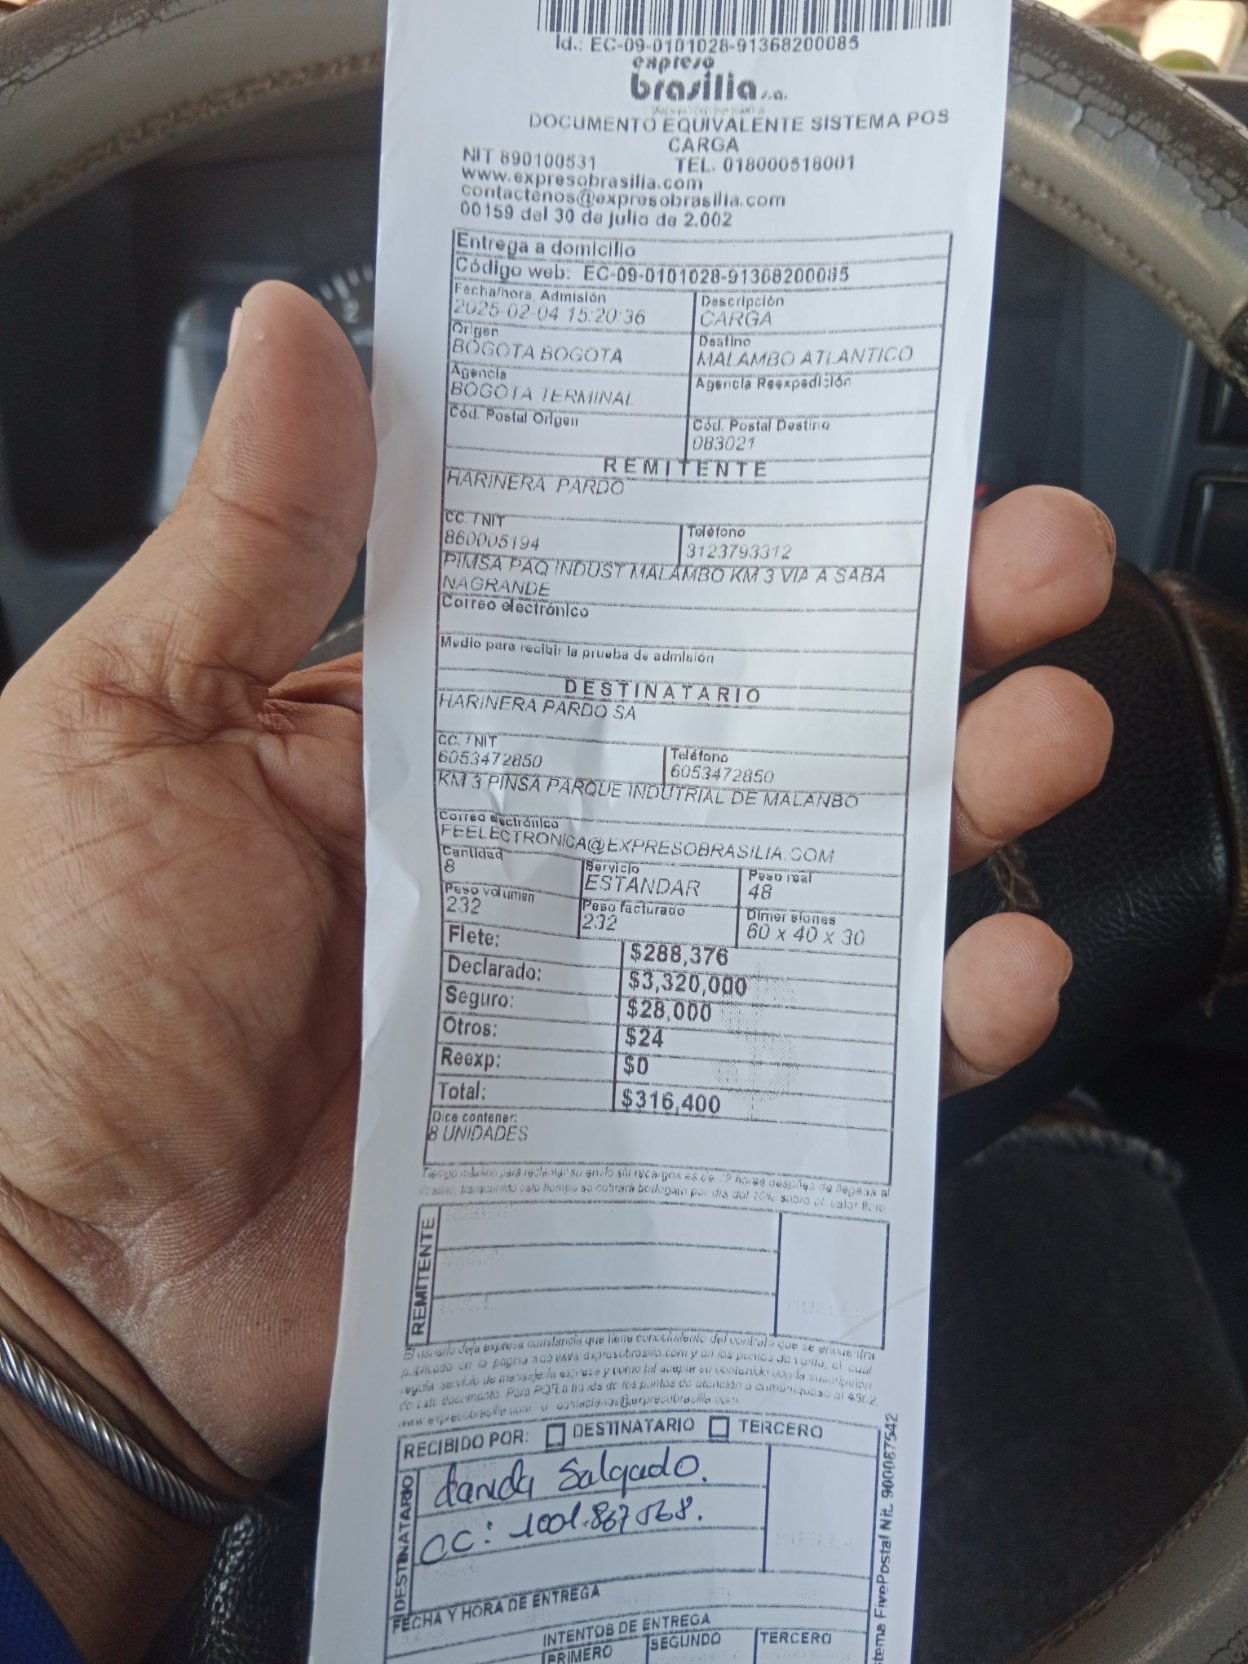 Id.: EC-09-0101028-91368200085
expreso
brasilia s.a.
DOCUMENTO EQUIVALENTE SISTEMA POS
CARGA
NIT 890100531 TEL. 018000518001
www.expresobrasilia.com
contactenos@expresobrasilia.com
00159 del 30 de julio de 2.002
Entrega a domicilio
Código web: EC-09-0101028-91368200085
Fecha/hora Admisión Descripción
2025-02-04 15:20:36 CARGA
Origen Destino
BOGOTA BOGOTA MALAMBO ATLANTICO
Agencia Agencia Reexpedición
BOGOTA TERMINAL
Cód. Postal Origen Cód. Postal Destino
083021
REMITENTE
HARINERA PARDO
CC. / NIT Teléfono
860005194 3123793312
PIMSA PAQ INDUST MALAMBO KM 3 VIA A SABA
NAGRANDE
Correo electrónico
Medio para recibir la prueba de admisión
DESTINATARIO
HARINERA PARDO SA
CC. / NIT Teléfono
6053472850 6053472850
KM 3 PINSA PARQUE INDUTRIAL DE MALANBO
Correo electrónico
FEELECTRONICA@EXPRESOBRASILIA.COM
Cantidad Servicio Peso real
8 ESTANDAR 48
Peso volumen Peso facturado Dimensiones
232 232 60 x 40 x 30
Flete: $288,376
Declarado: $3,320,000
Seguro: $28,000
Otros: $24
Reexp: $0
Total: $316,400
Dice contener:
8 UNIDADES
Tiempo máximo para reclamar su envío sin recargos es de horas después de llegada al
destino, transcurrido este tiempo se cobrará bodegaje por día del 10% sobre el valor flete
REMITENTE
El usuario deja expresa constancia que tiene conocimiento del contrato que se encuentra
publicado en la página web www.expresobrasilia.com y en los puntos de venta, el cual
regula servicio de mensajería expresa y como tal acepta su contenido con la suscripción
de este documento. Para PQR a través de los puntos de atención o comuníquese al
www.expresobrasilia.com o contactenos@expresobrasilia.com
RECIBIDO POR: DESTINATARIO TERCERO
DESTINATARIO
Salgado.
CC: 1001.867568.
FECHA Y HORA DE ENTREGA
INTENTOS DE ENTREGA
PRIMERO SEGUNDO TERCERO
tema FivePostal Nit. 900087542